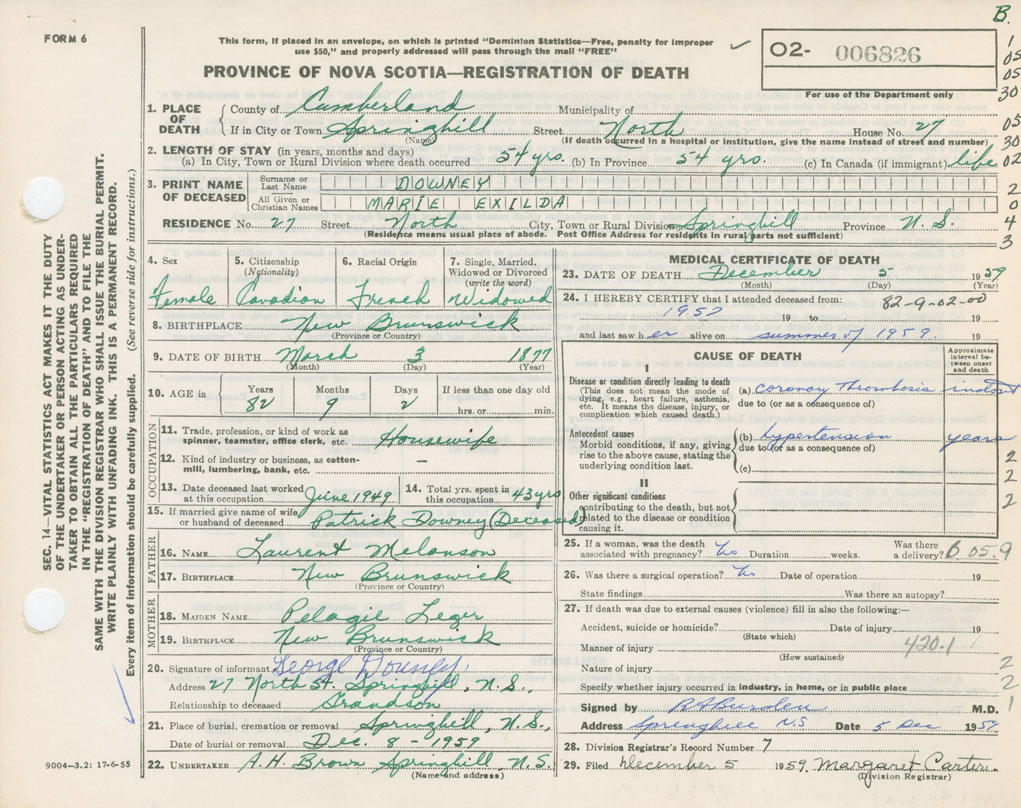 B.
FORM 6
This form, if placed in an envelope, on which is printed "Dominion Statistics—Free, penalty for improper
use $50," and properly addressed will pass through the mail "FREE"
O2- 006826
For use of the Department only
PROVINCE OF NOVA SCOTIA—REGISTRATION OF DEATH
1
05
05
30
05
30
02
2
0
4
3
1. PLACE OF DEATH
County of Cumberland Municipality of
If in City or Town Springhill Street North House No. 27
(Name) (If death occurred in a hospital or institution, give the name instead of street and number)
2. LENGTH OF STAY (in years, months and days)
(a) In City, Town or Rural Division where death occurred 54 yrs. (b) In Province 54 yrs. (c) In Canada (if immigrant) life
3. PRINT NAME OF DECEASED
Surname or Last Name DOWNEY
All Given or Christian Names MARIE EXILDA
RESIDENCE No. 27 Street North City, Town or Rural Division Springhill Province N. S.
(Residence means usual place of abode. Post Office Address for residents in rural parts not sufficient)
4. Sex
Female
5. Citizenship
(Nationality)
Canadian
6. Racial Origin
French
7. Single, Married, Widowed or Divorced
(write the word)
Widowed
8. BIRTHPLACE New Brunswick
(Province or Country)
9. DATE OF BIRTH March 3 1877
(Month) (Day) (Year)
10. AGE in
Years 82
Months 9
Days 2
If less than one day old
hrs. or min.
OCCUPATION
11. Trade, profession, or kind of work as
spinner, teamster, office clerk, etc. Housewife
12. Kind of industry or business, as cotton-
mill, lumbering, bank, etc. —
13. Date deceased last worked
at this occupation June 1949
14. Total yrs. spent in
this occupation 43 yrs
15. If married give name of wife
or husband of deceased Patrick Downey (Deceased)
FATHER
16. NAME Laurent Melanson
17. BIRTHPLACE New Brunswick
(Province or Country)
MOTHER
18. MAIDEN NAME Pelagil Leger
19. BIRTHPLACE New Brunswick
(Province or Country)
20. Signature of informant George Downey
Address 27 North St. Springhill, N.S.,
Relationship to deceased Grandson
21. Place of burial, cremation or removal Springhill, N.S.,
Date of burial or removal Dec. 8 - 1959
22. UNDERTAKER A. H. Brown Springhill, N.S.
(Name and address)
MEDICAL CERTIFICATE OF DEATH
23. DATE OF DEATH December 5 1959
(Month) (Day) (Year)
24. I HEREBY CERTIFY that I attended deceased from: 82-9-02-00
1957 19 to 19
and last saw h er alive on summer of 1959. 19
CAUSE OF DEATH
Approximate
interval be-
tween onset
and death
I
Disease or condition directly leading to death
(This does not mean the mode of
dying, e.g., heart failure, asthenia,
etc. It means the disease, injury, or
complication which caused death.)
(a) coronary thrombosis instant
due to (or as a consequence of)
Antecedent causes
Morbid conditions, if any, giving
rise to the above cause, stating the
underlying condition last.
(b) hypertension years
due to (or as a consequence of)
(c)
II
Other significant conditions
contributing to the death, but not
related to the disease or condition
causing it.
2
2
2
25. If a woman, was the death
associated with pregnancy? No Duration weeks. Was there
a delivery? 6 05.9
26. Was there a surgical operation? No Date of operation 19
State findings Was there an autopsy?
27. If death was due to external causes (violence) fill in also the following:—
Accident, suicide or homicide? Date of injury 19
(State which)
Manner of injury 420.1
(How sustained)
Nature of injury
Specify whether injury occurred in industry, in home, or in public place
2
2
1
Signed by M.D.
Address Springhill N.S Date 5 Dec 1959
28. Division Registrar's Record Number 7
29. Filed December 5 1959. Margaret Carter.
(Division Registrar)
SEC. 14—VITAL STATISTICS ACT MAKES IT THE DUTY
OF THE UNDERTAKER OR PERSON ACTING AS UNDER-
TAKER TO OBTAIN ALL THE PARTICULARS REQUIRED
IN THE "REGISTRATION OF DEATH" AND TO FILE THE
SAME WITH THE DIVISION REGISTRAR WHO SHALL ISSUE THE BURIAL PERMIT.
WRITE PLAINLY WITH UNFADING INK. THIS IS A PERMANENT RECORD.
Every item of information should be carefully supplied. (See reverse side for instructions.)
9004—3.2: 17-6-55